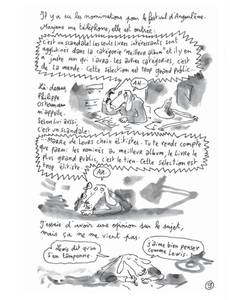 Il y a eu les nominations pour le festival d'Angoulême.
Marjane me téléphone, elle est outrée.
C'est un scandale! Les seuls livres intéressants sont
dans la catégorie "meilleur album" et il y en
a juste un qui l'aura. Les autres catégories, c'est
de la merde. Cette sélection est trop grand public.
AH.
Là-dessus,
Philippe
Ostermann
m'appelle.
Selon lui aussi:
C'est un scandale.
Marre de leurs choix élitistes. Tu te rends compte
que parmi les nominés au meilleur album, le livre le
plus grand public, c'est le tien. Cette sélection est
trop élitiste.
AH.
J'essaie d'avoir une opinion sur le sujet,
mais ça ne me vient pas.
Lewis dit qu'on
s'en tamponne.
J'aime bien penser
comme Lewis.